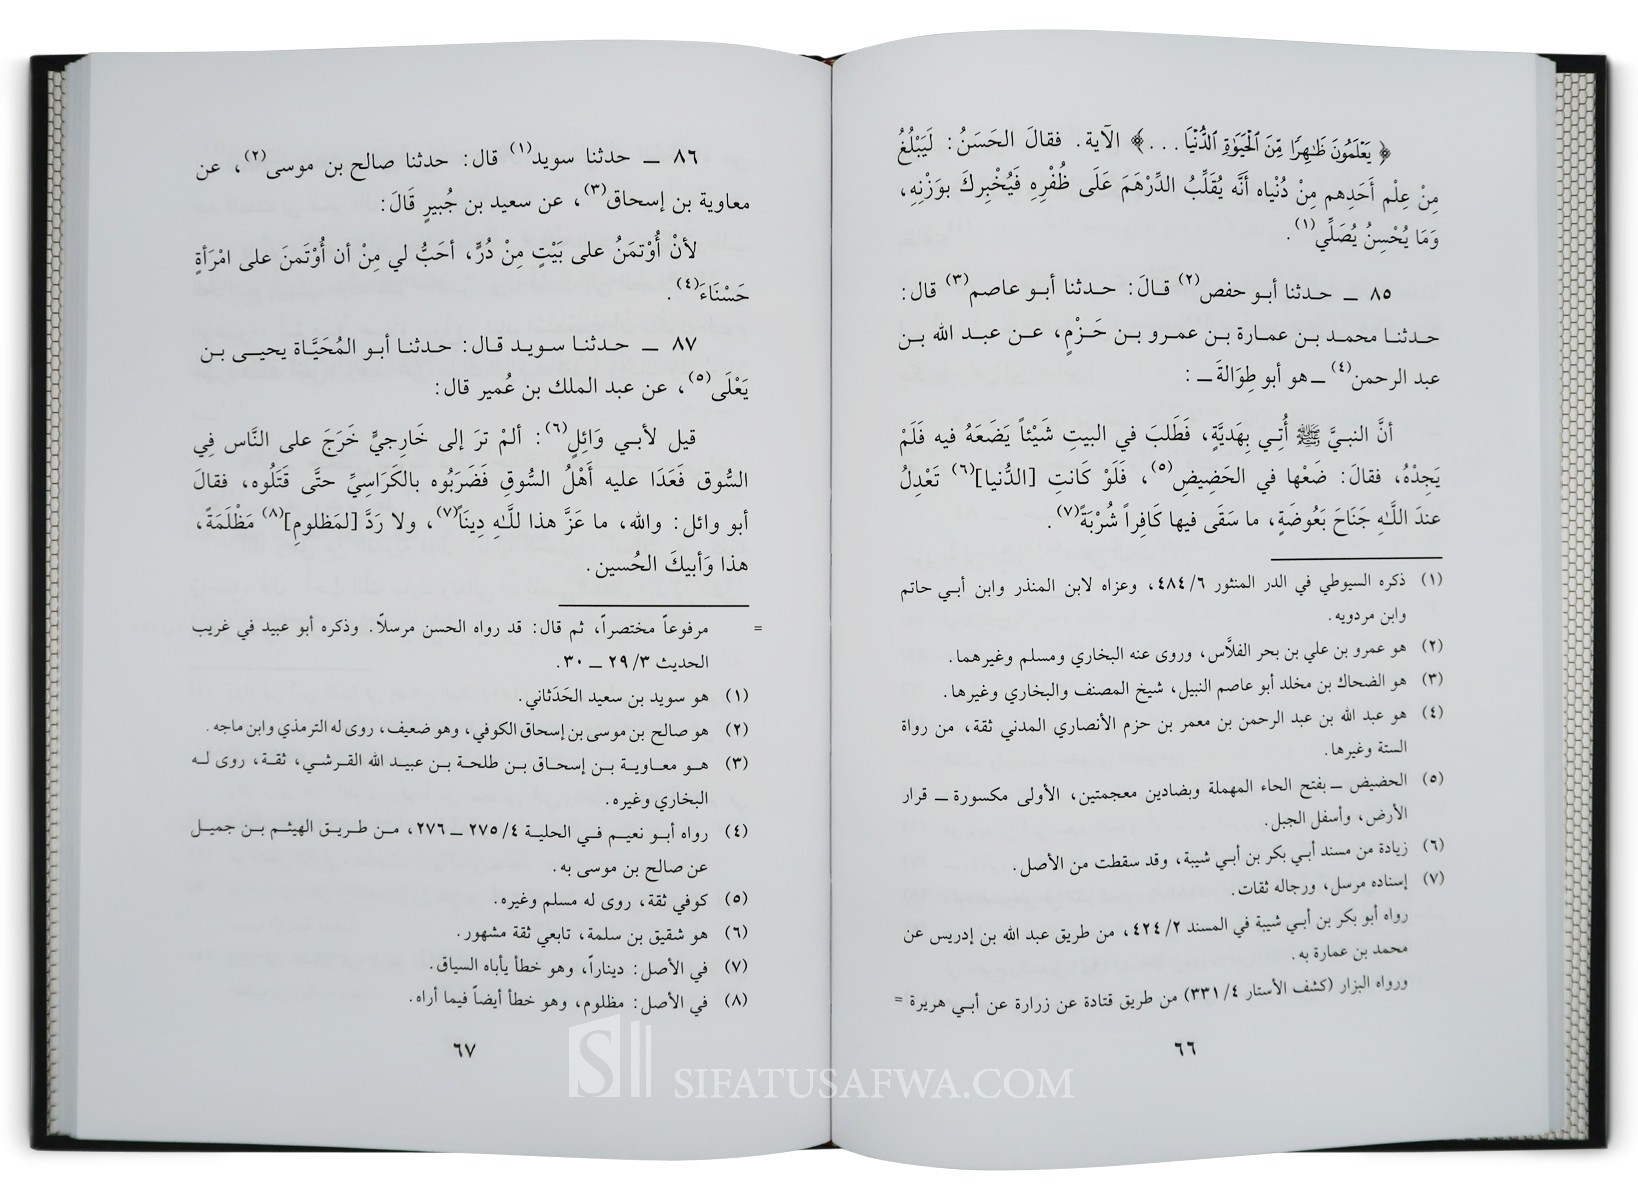 ﴿ يَعْلَمُونَ ظَاهِرًا مِّنَ الْحَيَوٰةِ الدُّنْيَا . . .﴾ الآية. فقالَ الحَسَنُ: لَيَبْلُغُ
مِنْ عِلْمِ أَحَدِهِم مِنْ دُنْياه أنَّه يُقَلِّبُ الدِّرْهَمَ عَلَى ظُفْرِهِ فَيُخْبِركَ بوَزْنِهِ،
وَمَا يُحْسِنُ يُصَلِّي(١).
٨٥ ــ حدثنا أبو حفص(٢) قالَ: حدثنا أبو عاصم(٣) قال:
حدثنا محمد بن عمارة بن عمرو بن حَزْمٍ، عن عبد الله بن
عبد الرحمن(٤) ــ هو أبو طِوَالةَ ــ :
أنَّ النبيَّ ﷺ أُتِي بِهَديَّةٍ، فَطَلبَ في البيتِ شَيْئاً يَضَعَهُ فيه فَلَمْ
يَجِدْهُ، فقالَ: ضَعْها في الحَضِيضِ(٥)، فَلَوْ كَانتِ [الدُّنيا](٦) تَعْدِلُ
عندَ اللَّهِ جَناحَ بَعُوضَةٍ، ما سَقَى فيها كَافِراً شُرْبَةً(٧).
(١) ذكره السيوطي في الدر المنثور ٤٨٤/٦، وعزاه لابن المنذر وابن أبي حاتم
وابن مردويه.
(٢) هو عمرو بن علي بن بحر الفلاَّس، وروى عنه البخاري ومسلم وغيرهما.
(٣) هو الضحاك بن مخلد أبو عاصم النبيل، شيخ المصنف والبخاري وغيرها.
(٤) هو عبد الله بن عبد الرحمن بن معمر بن حزم الأنصاري المدني ثقة، من رواة
الستة وغيرها.
(٥) الحضيض ــ بفتح الحاء المهملة وبضادين معجمتين، الأولى مكسورة ــ قرار
الأرض، وأسفل الجبل.
(٦) زيادة من مسند أبي بكر بن أبي شيبة، وقد سقطت من الأصل.
(٧) إسناده مرسل، ورجاله ثقات.
رواه أبو بكر بن أبي شيبة في المسند ٤٢٤/٢، من طريق عبد الله بن إدريس عن
محمد بن عمارة به.
ورواه البزار (كشف الأستار ٣٣١/٤) من طريق قتادة عن زرارة عن أبي هريرة =
٦٦
٨٦ ــ حدثنا سويد(١) قال: حدثنا صالح بن موسى(٢)، عن
معاوية بن إسحاق(٣)، عن سعيد بن جُبيرٍ قَالَ:
لأنْ أُوْتمَنُ على بَيْتٍ مِنْ دُرٍّ، أحَبُّ لي مِنْ أن أُوْتَمنَ على امْرَأةٍ
حَسْنَاءَ(٤).
٨٧ ــ حدثنا سويد قال: حدثنا أبو المُحَيَّاة يحيى بن
يَعْلَى(٥)، عن عبد الملك بن عُمير قال:
قيل لأبي وَائِلٍ(٦): ألمْ ترَ إلى خَارِجيٍّ خَرَجَ على النَّاس فِي
السُّوق فَعَدَا عليه أهْلُ السُّوقِ فَضَرَبُوه بالكَرَاسِيِّ حتَّى قَتَلُوه، فقالَ
أبو وائل: والله، ما عَزَّ هذا للَّهِ دِينَاً(٧)، ولا رَدَّ [لمَظلومِ](٨) مَظْلَمَةً،
هذا وَأبيكَ الحُسين.
= مرفوعاً مختصراً، ثم قال: قد رواه الحسن مرسلاً. وذكره أبو عبيد في غريب
الحديث ٢٩/٣ ــ ٣٠.
(١) هو سويد بن سعيد الحَدَثاني.
(٢) هو صالح بن موسى بن إسحاق الكوفي، وهو ضعيف، روى له الترمذي وابن ماجه.
(٣) هو معاوية بن إسحاق بن طلحة بن عبيد الله القرشي، ثقة، روى له
البخاري وغيره.
(٤) رواه أبو نعيم في الحلية ٢٧٥/٤ ــ ٢٧٦، من طريق الهيثم بن جميل
عن صالح بن موسى به.
(٥) كوفي ثقة، روى له مسلم وغيره.
(٦) هو شقيق بن سلمة، تابعي ثقة مشهور.
(٧) في الأصل: ديناراً، وهو خطأ يأباه السياق.
(٨) في الأصل: مظلوم، وهو خطأ أيضاً فيما أراه.
٦٧
SIFATUSAFWA.COM